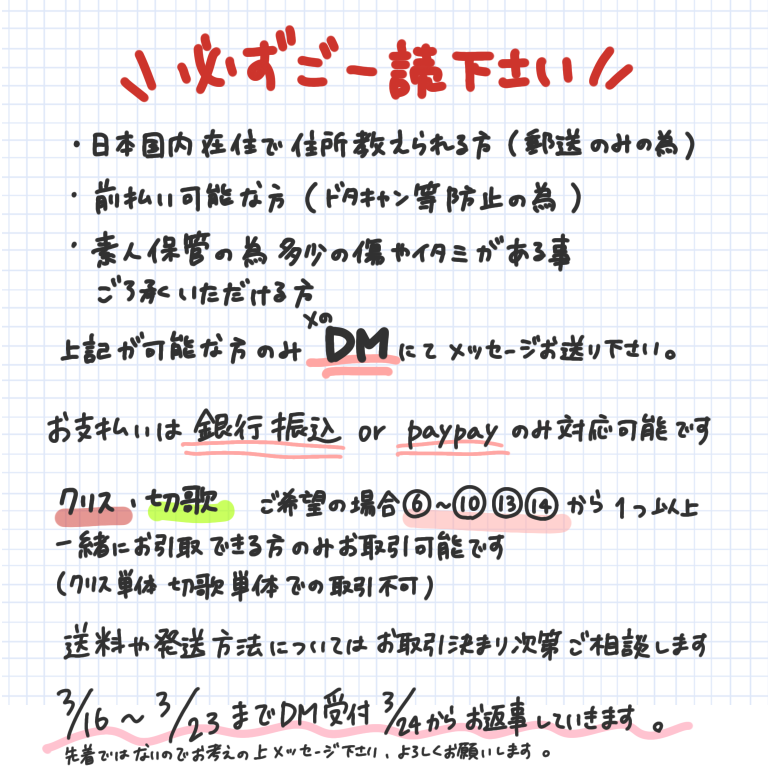 \\必ずご一読下さい//
・日本国内在住で住所教えられる方(郵送のみの為)
・前払い可能な方(ドタキャン等防止の為)
・素人保管の為多少の傷やイタミがある事
ごろ承くいただける方
上記が可能な方のみ XのDMにてメッセージお送り下さい。
お支払いは銀行振込 or paypayのみ対応可能です
クリス、切歌 ご希望の場合⑥~⑩⑬⑭から1つ以上
一緒にお引取できる方のみお取引可能です
(クリス単体 切歌単体での取引不可)
送料や発送方法についてはお取引決まり次第ご相談します
3/16~3/23までDM受付 3/24からお返事していきます。
先着ではないのでお考えの上メッセージ下さい、よろしくお願いします。